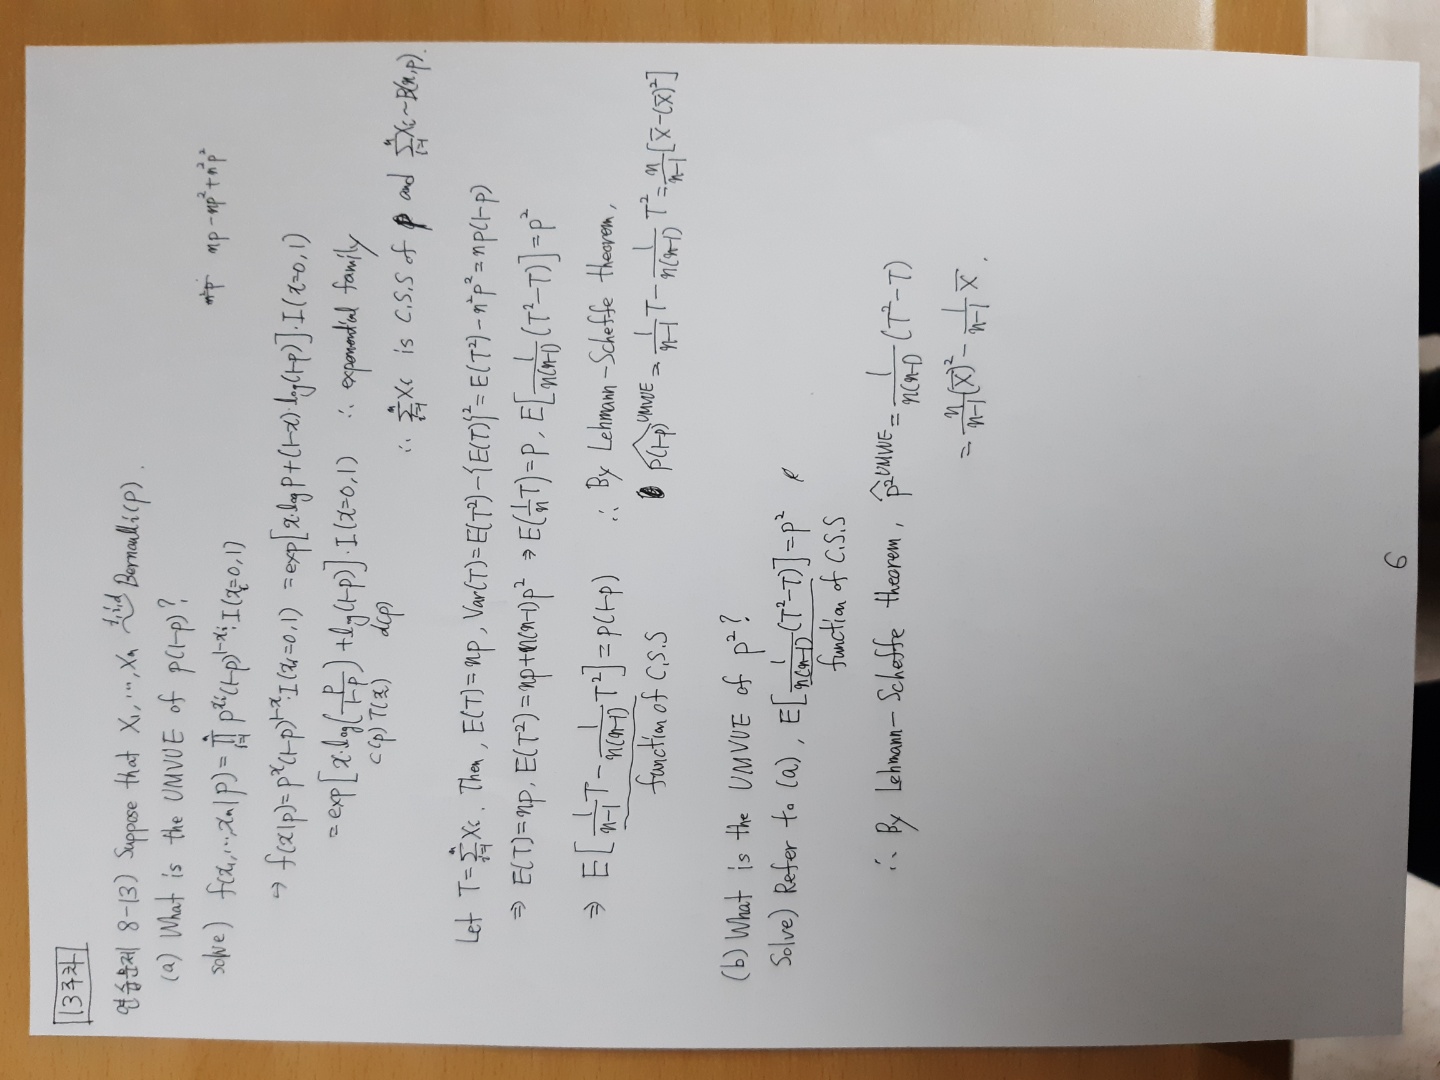 13주차
연습문제 8-13) Suppose that X₁, ..., Xₙ ~ⁱ·ⁱ·ᵈ Bernoulli(p).
(a) What is the UMVUE of p(1-p)?
np - np² + n²p²
solve) f(x₁, ..., xₙ|p) = ∏ᵢ₌₁ⁿ p^{xᵢ}(1-p)^{1-xᵢ}·I(xᵢ=0,1)
→ f(x|p) = p^x(1-p)^{1-x}·I(x=0,1) = exp[x·log p + (1-x)·log(1-p)]·I(x=0,1)
= exp[x·log(p/(1-p)) + log(1-p)]·I(x=0,1) ∴ exponential family
c(p) T(x) d(p)
∴ Σᵢ₌₁ⁿ Xᵢ is C.S.S of p and Σᵢ₌₁ⁿ Xᵢ ~ B(n,p).
Let T = Σᵢ₌₁ⁿ Xᵢ. Then, E(T) = np, Var(T) = E(T²) - {E(T)}² = E(T²) - n²p² = np(1-p)
⇒ E(T) = np, E(T²) = np + n(n-1)p² ⇒ E(1/n T) = p, E[1/(n(n-1)) (T² - T)] = p²
⇒ E[1/(n-1) T - 1/(n(n-1)) T²] = p(1-p) ∴ By Lehmann-Scheffe theorem,
function of C.S.S
p(1-p)^UMVUE = 1/(n-1) T - 1/(n(n-1)) T² = n/(n-1) [X̄ - (X̄)²]
(b) What is the UMVUE of p²?
Solve) Refer to (a), E[1/(n(n-1)) (T² - T)] = p²
function of C.S.S
∴ By Lehmann-Scheffe theorem, p̂²^UMVUE = 1/(n(n-1)) (T² - T)
= n/(n-1) (X̄)² - 1/(n-1) X̄.
6